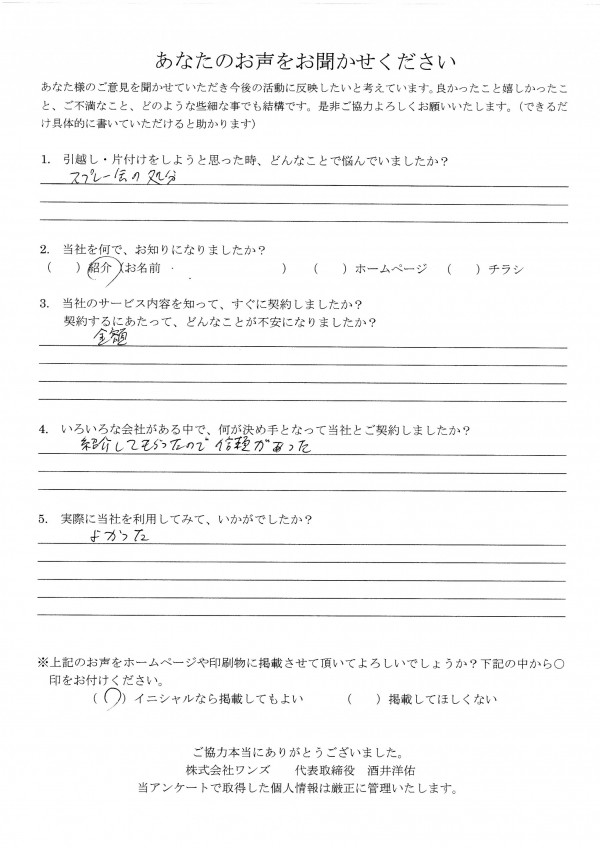 あなたのお声をお聞かせください
あなた様のご意見を聞かせていただき今後の活動に反映したいと考えています。良かったこと嬉しかったこ
と、ご不満なこと、どのような些細な事でも結構です。是非ご協力よろしくお願いいたします。（できるだ
け具体的に書いていただけると助かります）
1. 引越し・片付けをしようと思った時、どんなことで悩んでいましたか？
スプレー缶の処分
2. 当社を何で、お知りになりましたか？
（ ）紹介（お名前 ）（ ）ホームページ （ ）チラシ
3. 当社のサービス内容を知って、すぐに契約しましたか？
契約するにあたって、どんなことが不安になりましたか？
金額
4. いろいろな会社がある中で、何が決め手となって当社とご契約しましたか？
紹介してもらったので信頼があった
5. 実際に当社を利用してみて、いかがでしたか？
よかった
※上記のお声をホームページや印刷物に掲載させて頂いてよろしいでしょうか？下記の中から○
印をお付けください。
（○）イニシャルなら掲載してもよい （ ）掲載してほしくない
ご協力本当にありがとうございました。
株式会社ワンズ 代表取締役 酒井洋佑
当アンケートで取得した個人情報は厳正に管理いたします。